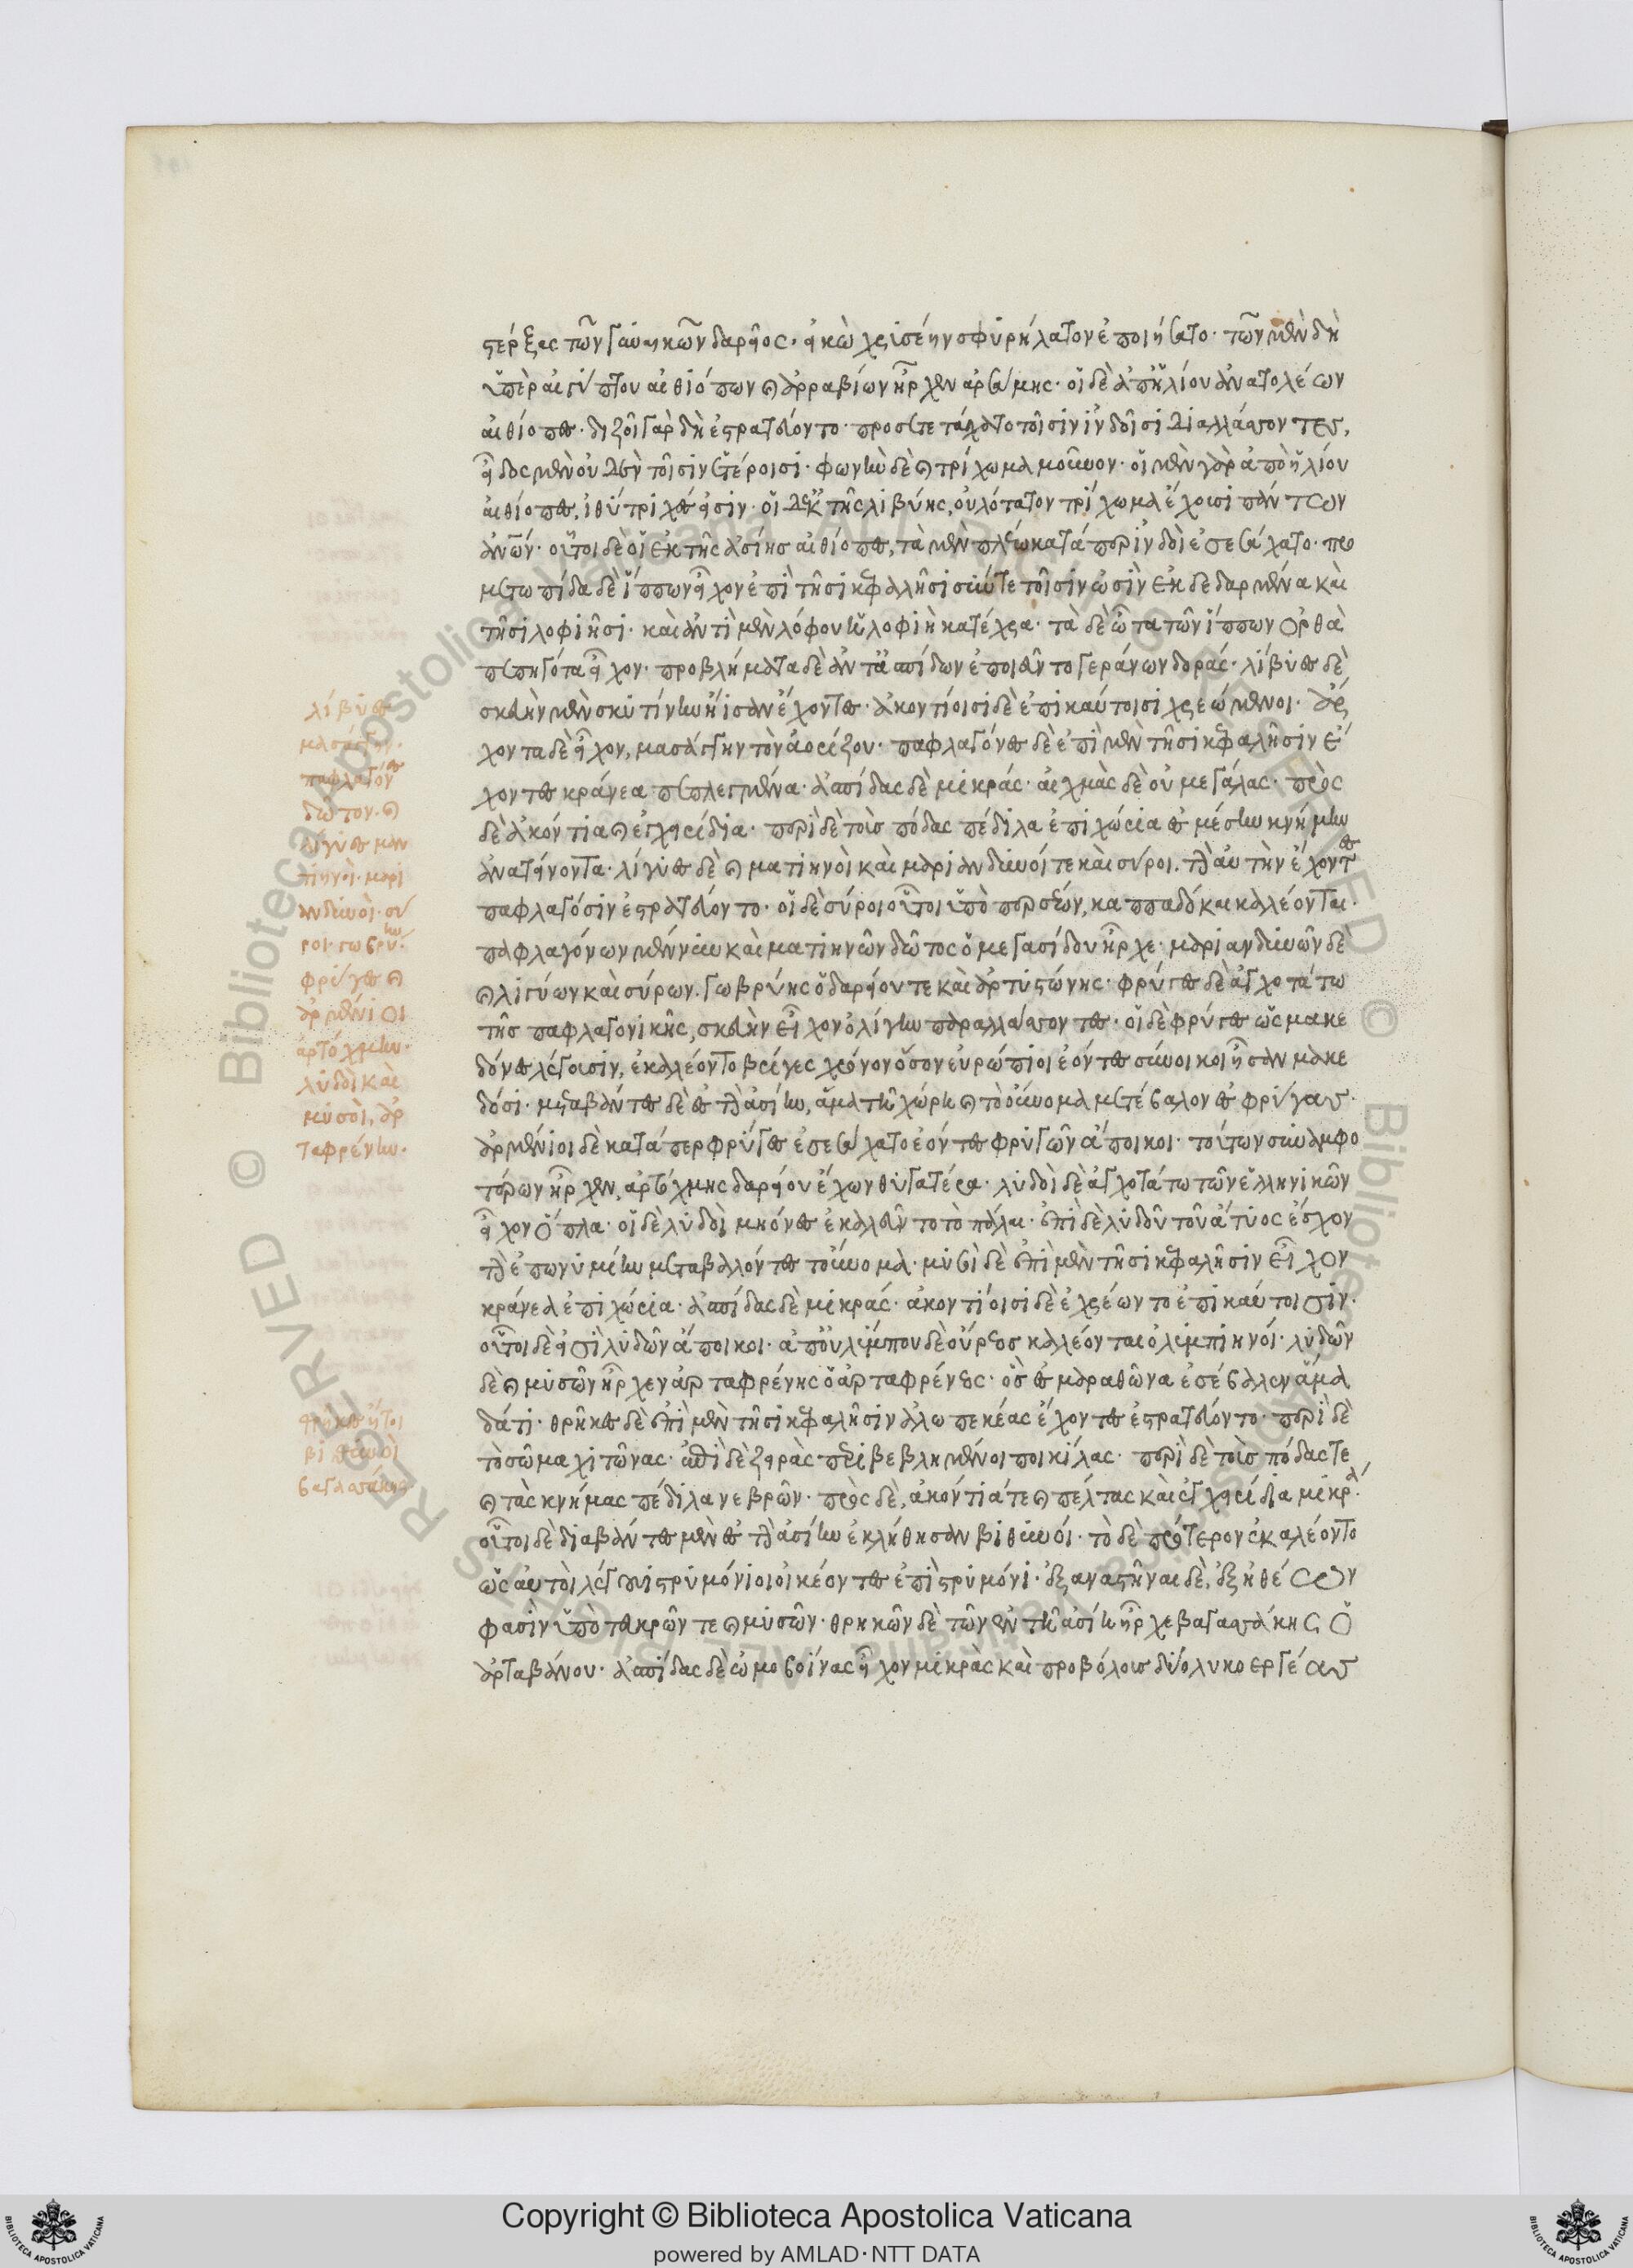 στέρξας τῶν γυναικῶν δαρεῖος· εἰκὼ χρυσέην σφυρήλατον ἐποιήσατο· τῶν μὲν δὴ
ὑπὲρ αἰγύπτου αἰθιόπων καὶ ἀρραβίων ἦρχεν ἀρσάμης· οἱ δὲ ἀπηλίου ἀνατολέων
αἰθίοπες· διξοὶ γὰρ δὴ ἐστρατεύοντο· προσετετάχατο τοῖσιν ἰνδοῖσι διαλλάσσοντες,
εἶδος μὲν οὐδὲν τοῖσιν ἑτέροισι· φωνὴν δὲ καὶ τρίχωμα μοῦνον· οἱ μὲν γὰρ ἀπὸ ἡλίου
αἰθίοπες, ἰθύτριχές εἰσιν· οἱ δ' ἐκ τῆς λιβύης, οὐλότατον τρίχωμα ἔχουσι πάντων
ἀνῶν· οὗτοι δὲ οἱ ἐκ τῆς ἀσίης αἰθίοπες, τὰ μὲν πλέω κατάπερ ἰνδοὶ ἐσεσάχατο· προ
μετωπίδα δὲ ἵππων εἶχον ἐπὶ τῆσι κεφαλῆσι σύν τε τοῖσιν ὠσὶν ἐκδεδαρμένα καὶ
τῆσι λοφιῆσι· καὶ ἀντὶ μὲν λόφου ἡ λοφιὴ κατέχρα· τὰ δὲ ὦτα τῶν ἵππων ὀρθὰ
πεπηγότα εἶχον· προβλήματα δὲ ἀντ' ἀσπίδων ἐποιεῦντο γεράνων δοράς· λίβυες δὲ
σκευὴν μὲν σκυτίνην ἤισαν ἔχοντες· ἀκοντίοισι δὲ ἐπικαύτοισι χρεώμενοι· ἄρ
χοντα δὲ εἶχον, μασάγην τὸν ἀορίζου· παφλαγόνες δὲ ἐπὶ μὲν τῆσι κεφαλῆσιν ἔ
χοντες κράνεα πεπλεγμένα· ἀσπίδας δὲ μικράς· αἰχμὰς δὲ οὐ μεγάλας· πρὸς
δὲ ἀκόντια καὶ ἐγχειρίδια· περὶ δὲ τοὺς πόδας πέδιλα ἐπιχώρια ἐς μέσην κνήμην
ἀνατείνοντα· λίγυες δὲ καὶ ματιηνοὶ καὶ μαριανδυνοί τε καὶ σύροι. τὴν αὐτὴν ἔχοντες
παφλαγόσιν ἐστρατεύοντο· οἱ δὲ σύροι οὗτοι ὑπὸ περσέων, καππαδόκαι καλέονται·
παφλαγόνων μέν νυν καὶ ματιηνῶν δῶτος ὁ μεγασίδου ἦρχε· μαριανδυνῶν δὲ
καὶ λιγύων καὶ σύρων. γωβρύης ὁ δαρείου τε καὶ ἀρτυστώνης· φρύγες δὲ ἀγχοτάτω
τῆς παφλαγονικῆς, σκευὴν εἶχον ὀλίγην παραλλάσσοντες· οἱ δὲ φρύγες ὡς μακε
δόνες λέγουσιν, ἐκαλέοντο βρίγες χρόνον ὅσον εὐρώπιοι ἐόντες σύνοικοι ἦσαν μακε
δόσι· μεταβάντες δὲ ἐς τὴν ἀσίην, ἅμα τῇ χώρῃ καὶ τὸ οὔνομα μετέβαλον ἐς φρύγας·
ἀρμένιοι δὲ κατάπερ φρύγες ἐσεσάχατο ἐόντες φρυγῶν ἄποικοι· τούτων συναμφο
τέρων ἦρχεν, ἀρτόχμης δαρείου ἔχων θυγατέρα· λυδοὶ δὲ ἀγχοτάτω τῶν ἑλληνικῶν
εἶχον ὅπλα· οἱ δὲ λυδοὶ μηόνες ἐκαλεῦντο τὸ πάλαι· ἐπὶ δὲ λυδοῦ τοῦ ἄτυος ἔσχον
τὴν ἐπωνυμίην μεταβαλόντες τοὔνομα· μυσοὶ δὲ ἐπὶ μὲν τῆσι κεφαλῆσιν εἶχον
κράνεα ἐπιχώρια· ἀσπίδας δὲ μικράς· ἀκοντίοισι δὲ ἐχρέωντο ἐπικαύτοισιν·
οὗτοι δέ εἰσι λυδῶν ἄποικοι· ἀπ' οὐλύμπου δὲ οὔρεος καλέονται ὀλυμπιηνοί· λυδῶν
δὲ καὶ μυσῶν ἦρχεν ἀρταφρένης ὁ ἀρταφρένεος· ὃς ἐς μαραθῶνα ἐσέβαλεν ἅμα
δάτι· θρήικες δὲ ἐπὶ μὲν τῆσι κεφαλῆσιν ἀλωπεκέας ἔχοντες ἐστρατεύοντο· περὶ δὲ
τὸ σῶμα χιτῶνας· ἐπὶ δὲ ζειρὰς περιβεβλημένοι ποικίλας· περὶ δὲ τοὺς πόδας τε
καὶ τὰς κνήμας πέδιλα νεβρῶν· πρὸς δὲ, ἀκόντιά τε καὶ πέλτας καὶ ἐγχειρίδια μικρά·
οὗτοι δὲ διαβάντες μὲν ἐς τὴν ἀσίην ἐκλήθησαν βιθυνοί· τὸ δὲ πρότερον ἐκαλέοντο
ὡς αὐτοὶ λέγουσι στρυμόνιοι οἰκέοντες ἐπὶ στρυμόνι· ἐξαναστῆναι δὲ, ἐξ ἠθέων
φασὶν ὑπὸ τευκρῶν τε καὶ μυσῶν· θρηίκων δὲ τῶν ἐν τῇ ἀσίῃ ἦρχε βαγασσάκης ὁ
ἀρταβάνου· ἀσπίδας δὲ ὠμοβοΐνας εἶχον μικρὰς καὶ προβόλους δύο λυκοεργέας
λίβυες
μασάγης·
παφλαγόνες
δῶτον· καὶ
λίγυες μαν
τιηνοὶ· μαρι
ανδυνοὶ· σύ
ροι· γωβρύην·
φρύγες καὶ
ἀρμένιοι
ἀρτόχμην·
λυδοὶ καὶ
μυσοὶ, ἀρ
ταφρένην·
θρήικες ἤτοι
βιθυνοὶ
βαγασσάκης
Copyright © Biblioteca Apostolica Vaticana
powered by AMLAD·NTT DATA